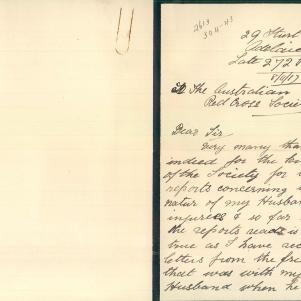 2613
304-H3
29 Sturt
Adelaid
Late 2728
8/11/17
To The Australian
Red Cross Socie
Dear Sir
Very many tha
indeed for the
of the Society for
reports concerning
natur of my Husband
injuries & so far
the reports read is
true as I have rec
letters from the fri
that was with my
Husband when he